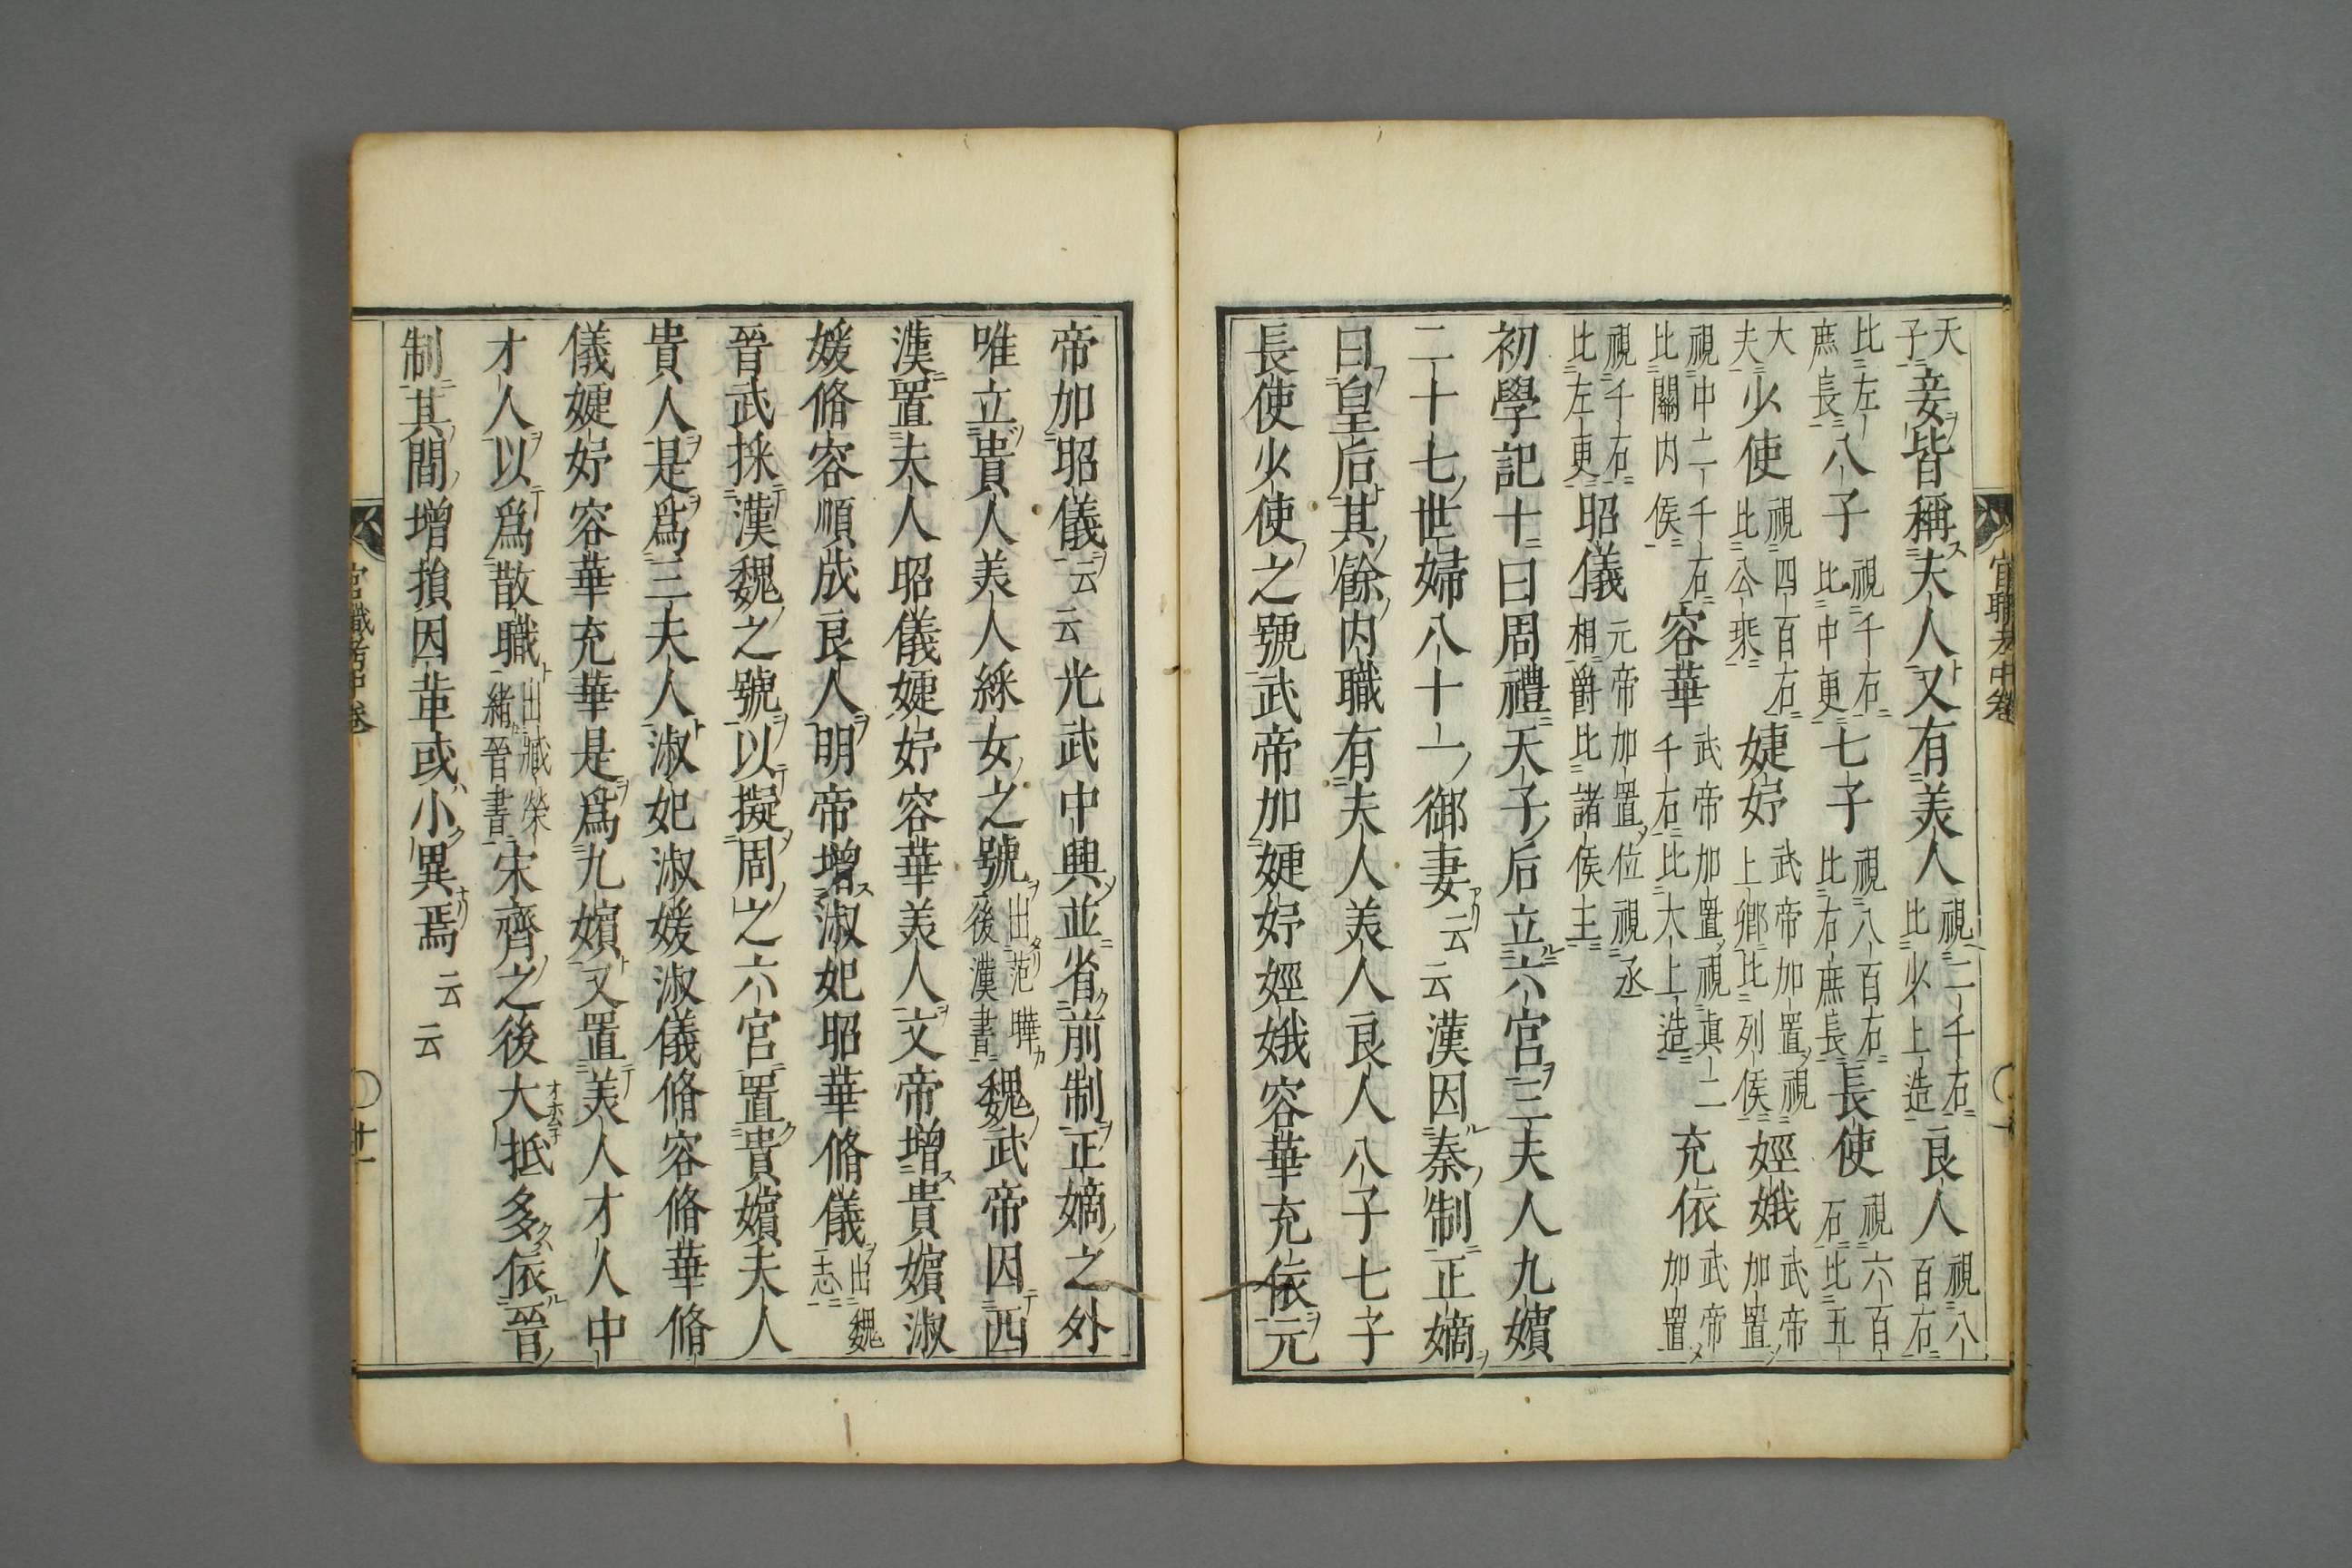 天子妾皆稱夫人又有美人視二千石比少上造良人視八百石
比左庶長八子視千石比中更七子視八百石比右庶長長使視六百石比五
大夫少使視四百石比公乗婕妤武帝加置視上卿比列侯娙娥武帝加置
視中二千石比關内侯容華武帝加置視真二千石比大上造充依武帝加置
視千石比左更昭儀元帝加置位視丞相爵比諸侯主
初學記十曰周禮天子后立六宮三夫人九嬪
二十七世婦八十一御妻云云漢因秦制正嫡
曰皇后其餘内職有夫人美人良人八子七子
長使少使之號武帝加婕妤娙娥容華充依元
帝加昭儀云云光武中興並省前制正嫡之外
唯立貴人美人綵女之號出范曄後漢書魏武帝因西
漢置夫人昭儀婕妤容華美人文帝增貴嬪淑
媛脩容順成良人明帝增淑妃昭華脩儀出魏志
晉武採漢魏之號以擬周之六宮置貴嬪夫人
貴人是爲三夫人淑妃淑媛淑儀脩容脩華脩
儀婕妤容華充華是爲九嬪又置美人才人中
才人以爲散職出臧榮緒晉書宋齊之後大抵多依晉
制其間增損因革或小異焉云云
官職考中卷
廿一